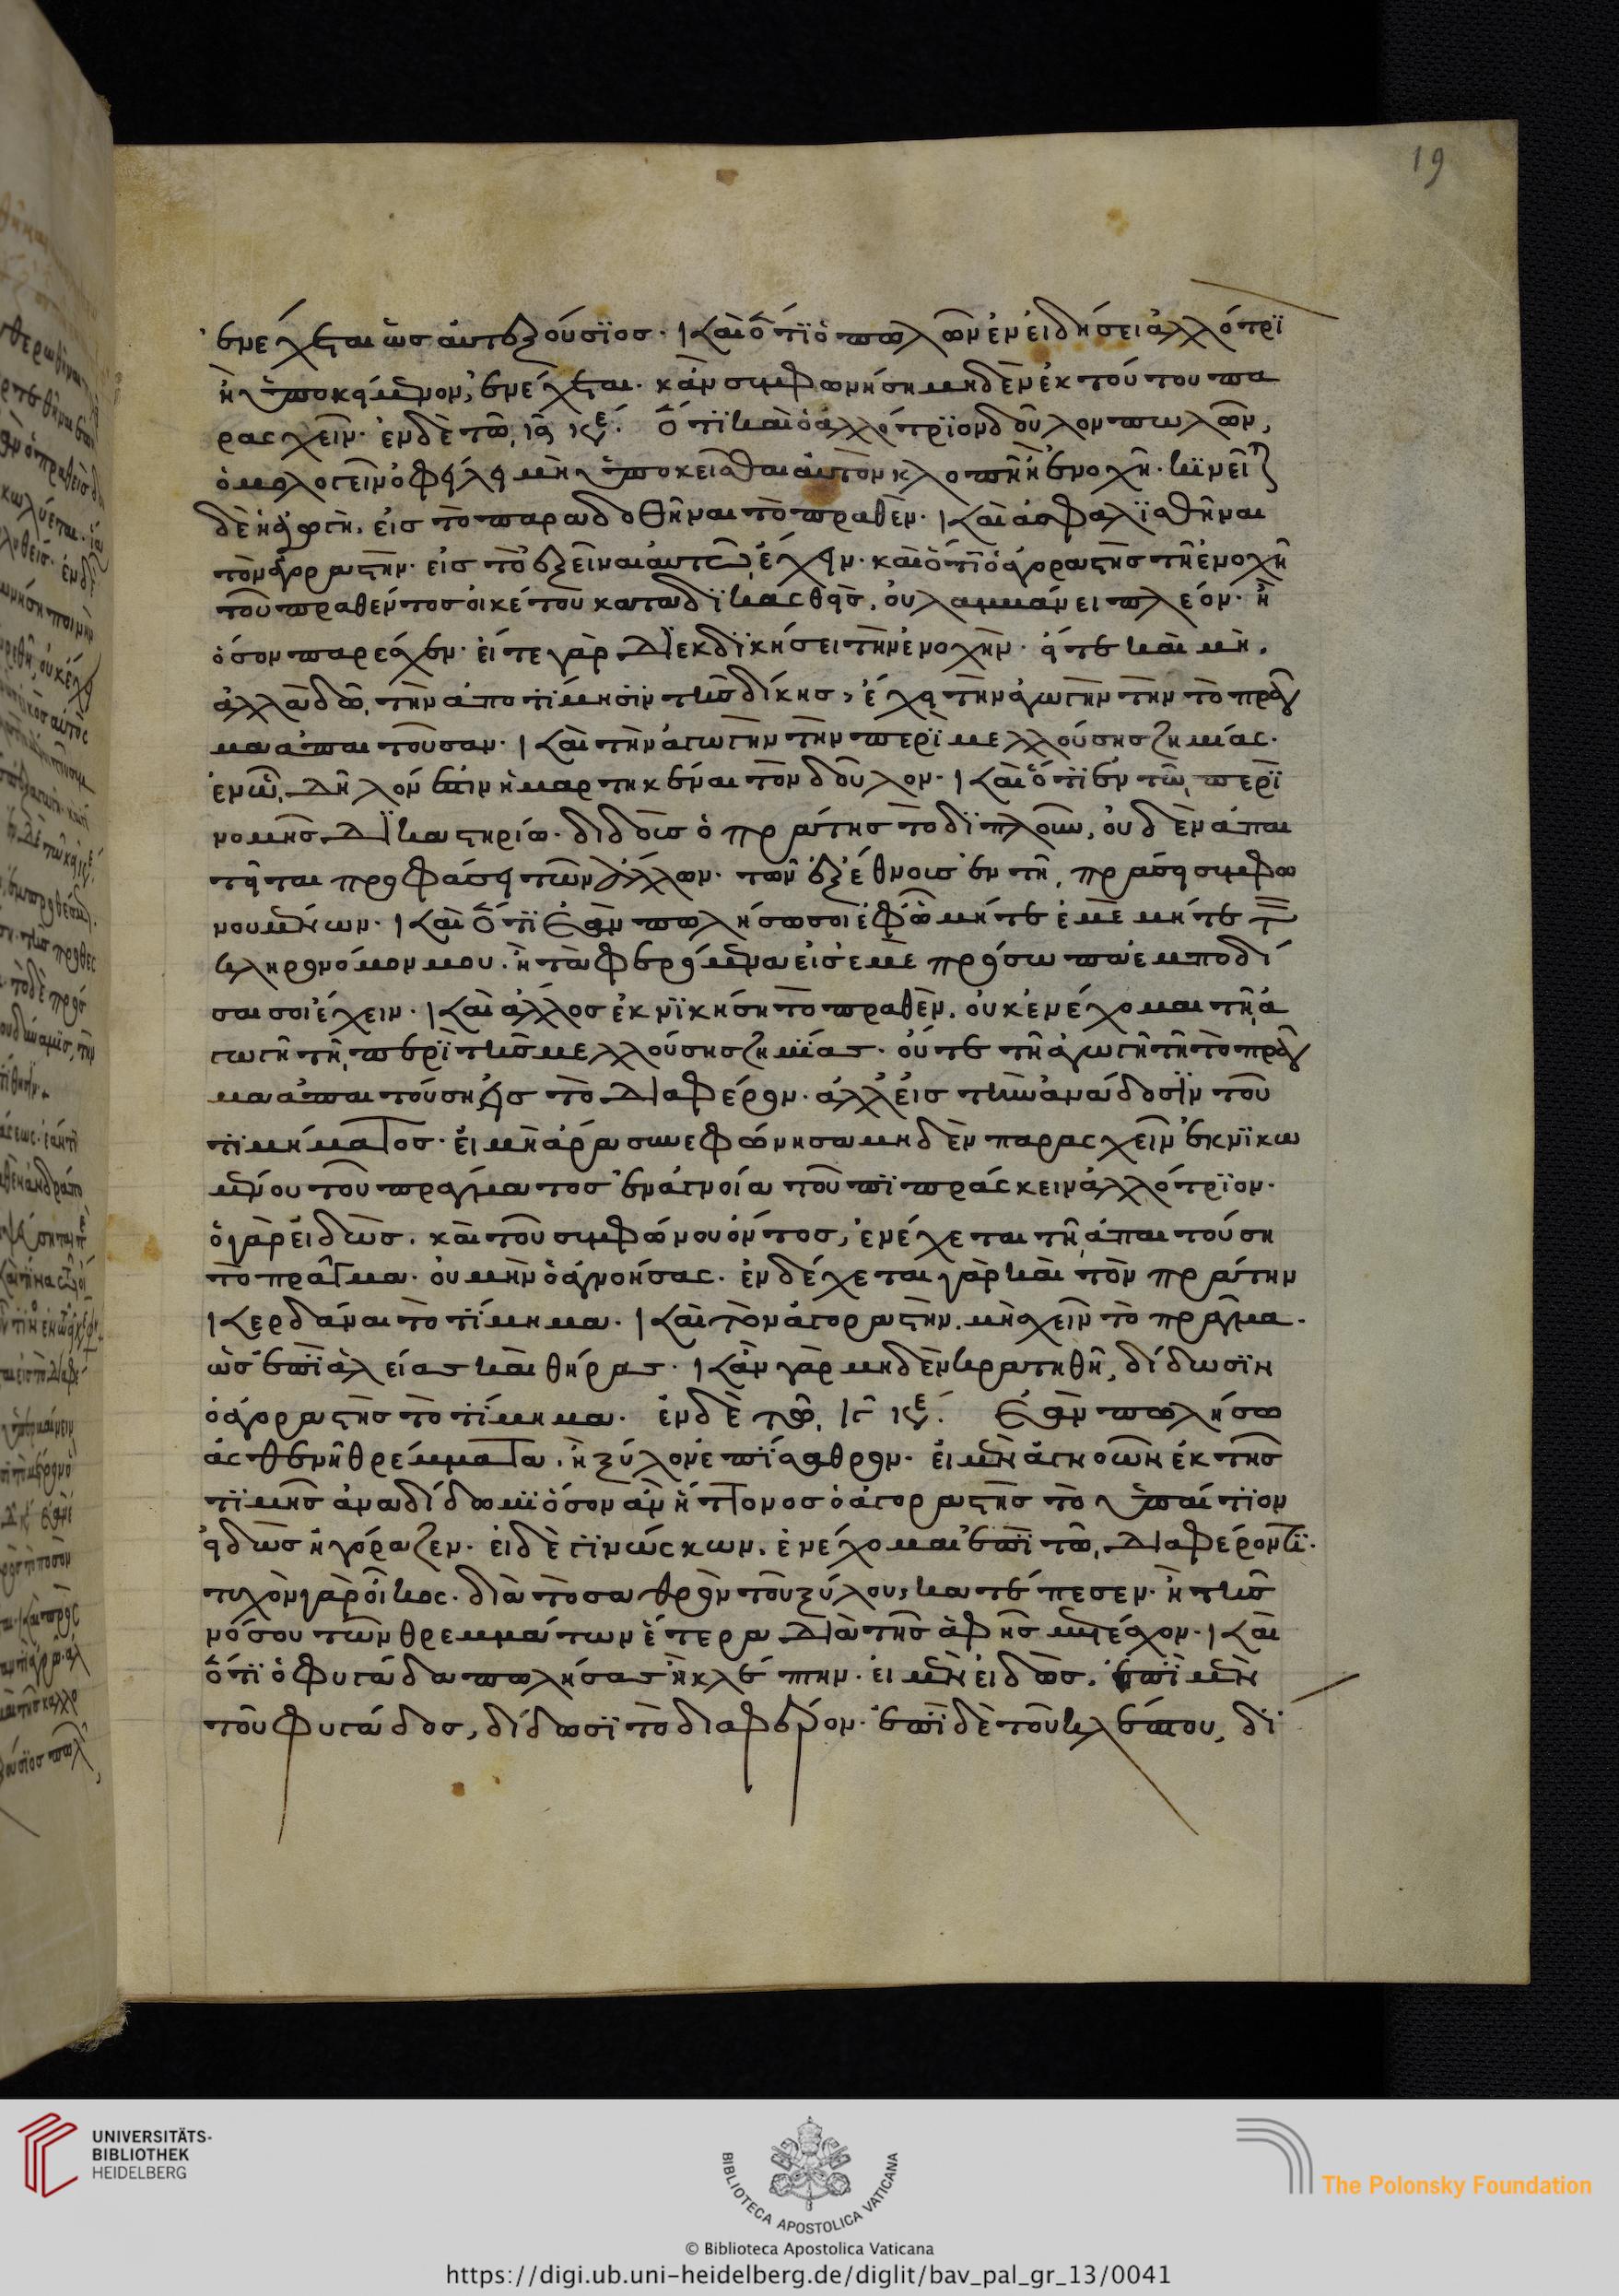 19
ἐνέχεται ὡς αὐτεξούσιος· καὶ ὅτι ὁ πωλῶν ἐν εἰδήσει ἀλλότρι
ἢ ὑποκείμενον, ἐνέχεται· κἂν συμφωνήσῃ μηδὲν ἐκ τούτου πα
ρασχεῖν· ἐν δὲ τῷ ια κεφ. Ὅτι καὶ ὁ ἀλλότριον δοῦλον πωλῶν,
ὁμολογεῖν ὀφείλει μὴ ὑποκεῖσθαι αὐτὸν κλοπῇ ἢ ἐνοχῇ· κινεῖται
δὲ ἡ ἀγωγὴ, εἰς τὸ παραδοθῆναι τὸ πραθέν· καὶ ἀσφαλισθῆναι
τὸν ἀγοραστὴν· εἰς τὸ ἐξεῖναι αὐτῷ ἔχειν· καὶ ὅτι ὁ ἀγοραστὴς τῇ ἐνοχῇ
τοῦ πραθέντος οἰκέτου καταδικασθεὶς, οὐ λαμμάνει πλέον· ἢ
ὅσον παρέσχεν· εἴτε γὰρ διεκδικήσει τὴν ἐνοχὴν· εἴτε καὶ μὴ,
ἀλλὰ δῷ τὴν ἀποτίμησιν τῆς δίκης, ἔχει τὴν ἀγωγὴν τὴν τὸ πρᾶγ
μα ἀπαιτοῦσαν· καὶ τὴν ἀγωγὴν τὴν περὶ μελλούσης ζημίας·
ἐν ᾧ δῆλόν ἐστιν ἡμαρτηκέναι τὸν δοῦλον· καὶ ὅτι ἐν τῷ περὶ
νομῆς δικαστηρίῳ· διδοὺς ὁ πράτης τὸ διπλοῦν, οὐδὲν ἀπαι
τεῖται προφάσει τῶν ἄλλων· τῶν ἐξ ἔθνους ἐν τῇ πράσει συμφω
νουμένων· καὶ ὅτι ἐὰν πωλήσω σοι ἐφ' ᾧ μήτε ἐμὲ μήτε τ
κληρονόμον μου· ἢ τὰ φερόμενα εἰς ἐμὲ πρόσωπα ἐμποδί
σαι σοι ἔχειν· καὶ ἄλλος ἐκνικήσῃ τὸ πραθὲν, οὐκ ἐνέχομαι τῇ ἀ
γωγῇ τῇ περὶ τῆς μελλούσης ζημίας· οὔτε τῇ ἀγωγῇ τῇ τὸ πρᾶγ
μα ἀπαιτούσῃ εἰς τὸ διαφέρον· ἀλλ' εἰς τὴν ἀναδόσιν τοῦ
τιμήματος· εἰ μὴ ἄρα συνεφώνησα μηδὲν παρασχεῖν ἐκνικω
μένου τοῦ πράγματος ἐν ἀγνοίᾳ τοῦ πιπράσκειν ἀλλότριον·
ὁ γὰρ εἰδὼς, καὶ τοῦ συμφώνου ὄντος, ἐνέχεται τῇ ἀπαιτούσῃ
τὸ πρᾶγμα· οὐ μὴν ὁ ἀγνοήσας· ἐνδέχεται γὰρ καὶ τὸν πράτην
κερδάναι τὸ τίμημα· καὶ τὸν ἀγοραστὴν, μὴ σχεῖν τὸ πρᾶγμα·
ὡς ἐπὶ ἁλείας καὶ θήρας· κἂν γὰρ μηδὲν κρατηθῇ, δίδωσιν
ὁ ἀγοραστὴς τὸ τίμημα· ἐν δὲ τῷ ιγ κεφ. Ἐὰν πωλήσω
ἀσθενῆ θρέμματα· ἢ ξύλον ἐπίσαθρον· εἰ μὲν ἀγνοῶν ἐκ τῆς
τιμῆς ἀναδίδωμι ὅσον ἂν ἧττονος ὁ ἀγοραστὴς τὸ ὑπαίτιον
εἰδὼς ἠγόραζεν· εἰ δὲ γινώσκων, ἐνέχομαι ἐπὶ τῷ διαφέροντι·
τυχὸν γὰρ ὁ οἶκος, διὰ τὸ σαθρὸν τοῦ ξύλου, κατέπεσεν· ἢ τῆς
νόσου τῶν θρεμμάτων ἕτερα διὰ τῆς ἁφῆς μετέσχον· καὶ
ὅτι ὁ φυγάδα πωλήσας ἢ κλέπτην· εἰ μὲν εἰδὼς, ἐπὶ μὲν
τοῦ φυγάδος, δίδωσι τὸ διαφέρον· ἐπὶ δὲ τοῦ κλέπτου, δι
UNIVERSITÄTS-
BIBLIOTHEK
HEIDELBERG
BIBLIOTECA APOSTOLICA VATICANA
The Polonsky Foundation
© Biblioteca Apostolica Vaticana
https://digi.ub.uni-heidelberg.de/diglit/bav_pal_gr_13/0041